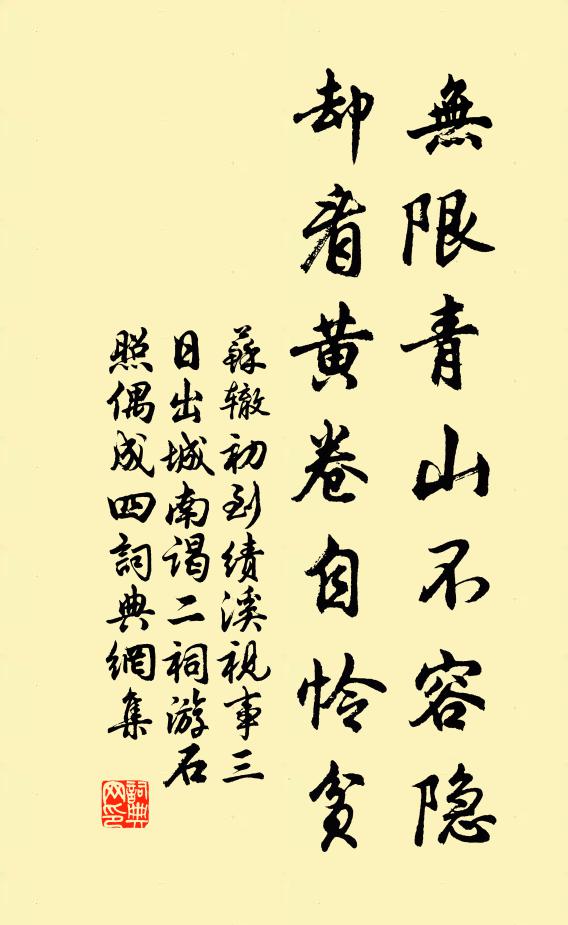 無限青山不容隐
却看黄卷自怜貧
蘇辙初到绩溪視事三
日出城南谒二祠游石
照偶成四詞典網集
詞典
网印